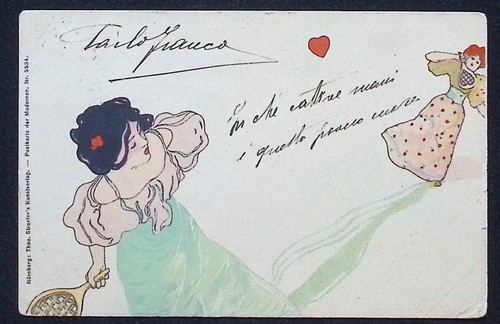 Carlo Franco
In che cattive mani
è quello povero cuore
Nürnberg: Theo. Stroefer's Kunstverlag. — Postkarte der Modernen. Nr. 5534.